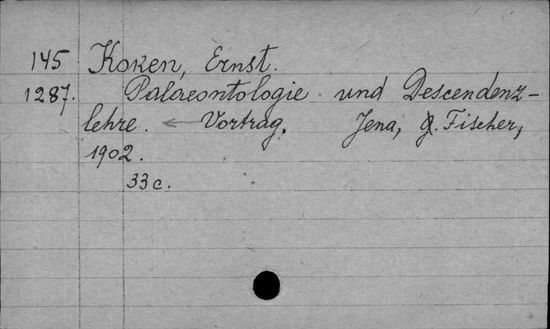 145 Koken, Ernst.
1287. Palaeontologie und Descendenz-
lehre. ← Vortrag. Jena, G. Fischer,
1902.
33c.